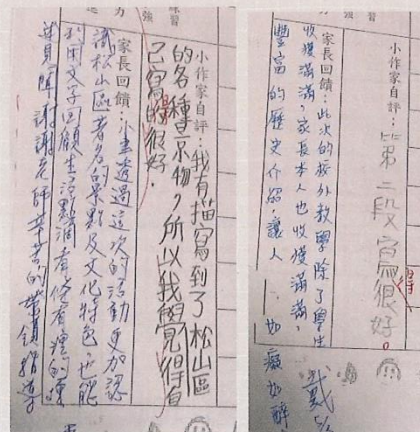 小作家自評：我有描寫到了松山區
的各種景物，所以我覺得自
己寫得很好。
家長回饋：小孩透過這次的活動更加認
識松山區著名的景點及文化特色，也能
利用文字回顧生活點滴
謝謝老師辛苦的帶領指導
小作家自評：第二段寫很好。
得
家長回饋：此次的校外教學除了學生
收獲滿滿，家長本人也收獲滿滿，
豐富的歷史介紹，讓人
如癡如醉